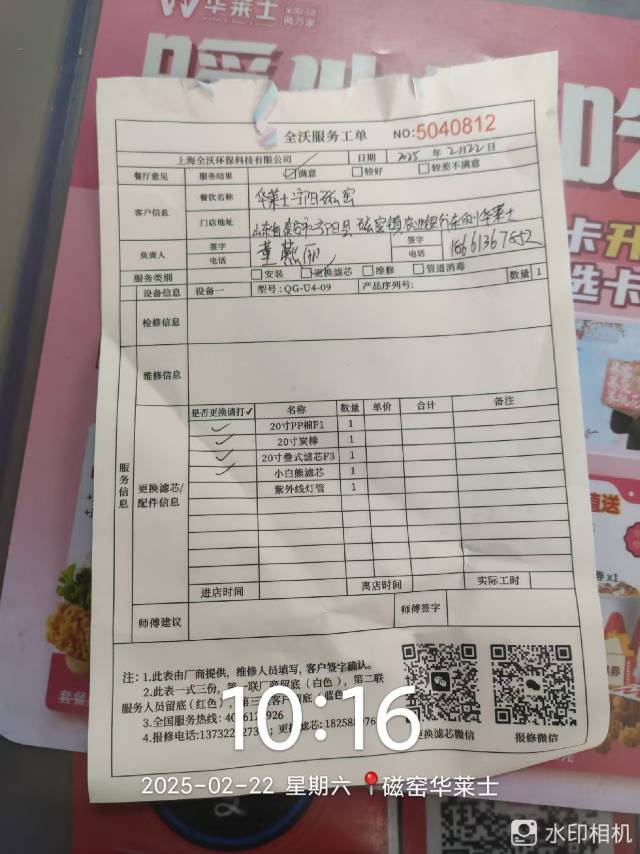 华莱士
全沃服务工单 NO:5040812
上海全沃环保科技有限公司 日期 2025 年 2月22日
餐厅意见 服务结果 满意 较好 较差不满意
客户信息 餐饮名称 华莱士宁阳磁窑
门店地址 山东省泰安市宁阳县磁窑镇农业银行东侧华莱士
负责人 签字 签字
电话 电话
服务类别 安装 更换滤芯 维修 管道消毒 数量 1
设备信息 设备一 型号:QG-U4-09 产品序列号:
检修信息
维修信息
服务信息
更换滤芯/
配件信息
是否更换请打✓ 名称 数量 单价 合计 备注
✓ 20寸PP棉F1 1
✓ 20寸炭棒 1
✓ 20寸叠式滤芯F3 1
✓ 小白熊滤芯 1
紫外线灯管 1
进店时间 离店时间 实际工时
师傅建议 师傅签字
注:1.此表由厂商提供,维修人员填写,客户签字确认。
2.此表一式三份,第一联厂商留底(白色),第二联
服务人员留底(红色),第三联客户留底(蓝色)
3.全国服务热线:
4.报修电话:
更换滤芯微信 报修微信
10:16
2025-02-22 星期六 磁窑华莱士
水印相机